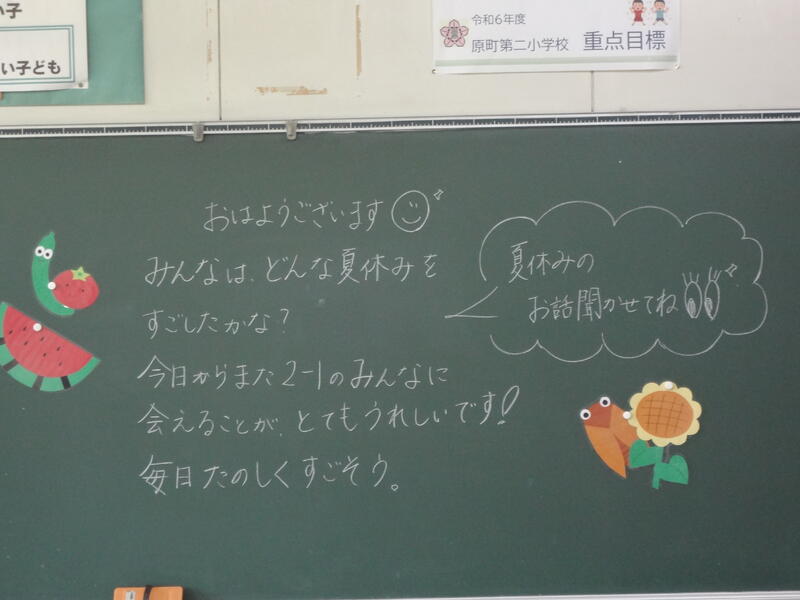 い子
い子ども
令和6年度
原町第二小学校 重点目標
おはようございます
みんなは、どんな夏休みを
すごしたかな？
今日からまた2-1のみんなに
会えることが、とてもうれしいです!
毎日たのしくすごそう。
夏休みの
お話聞かせてね